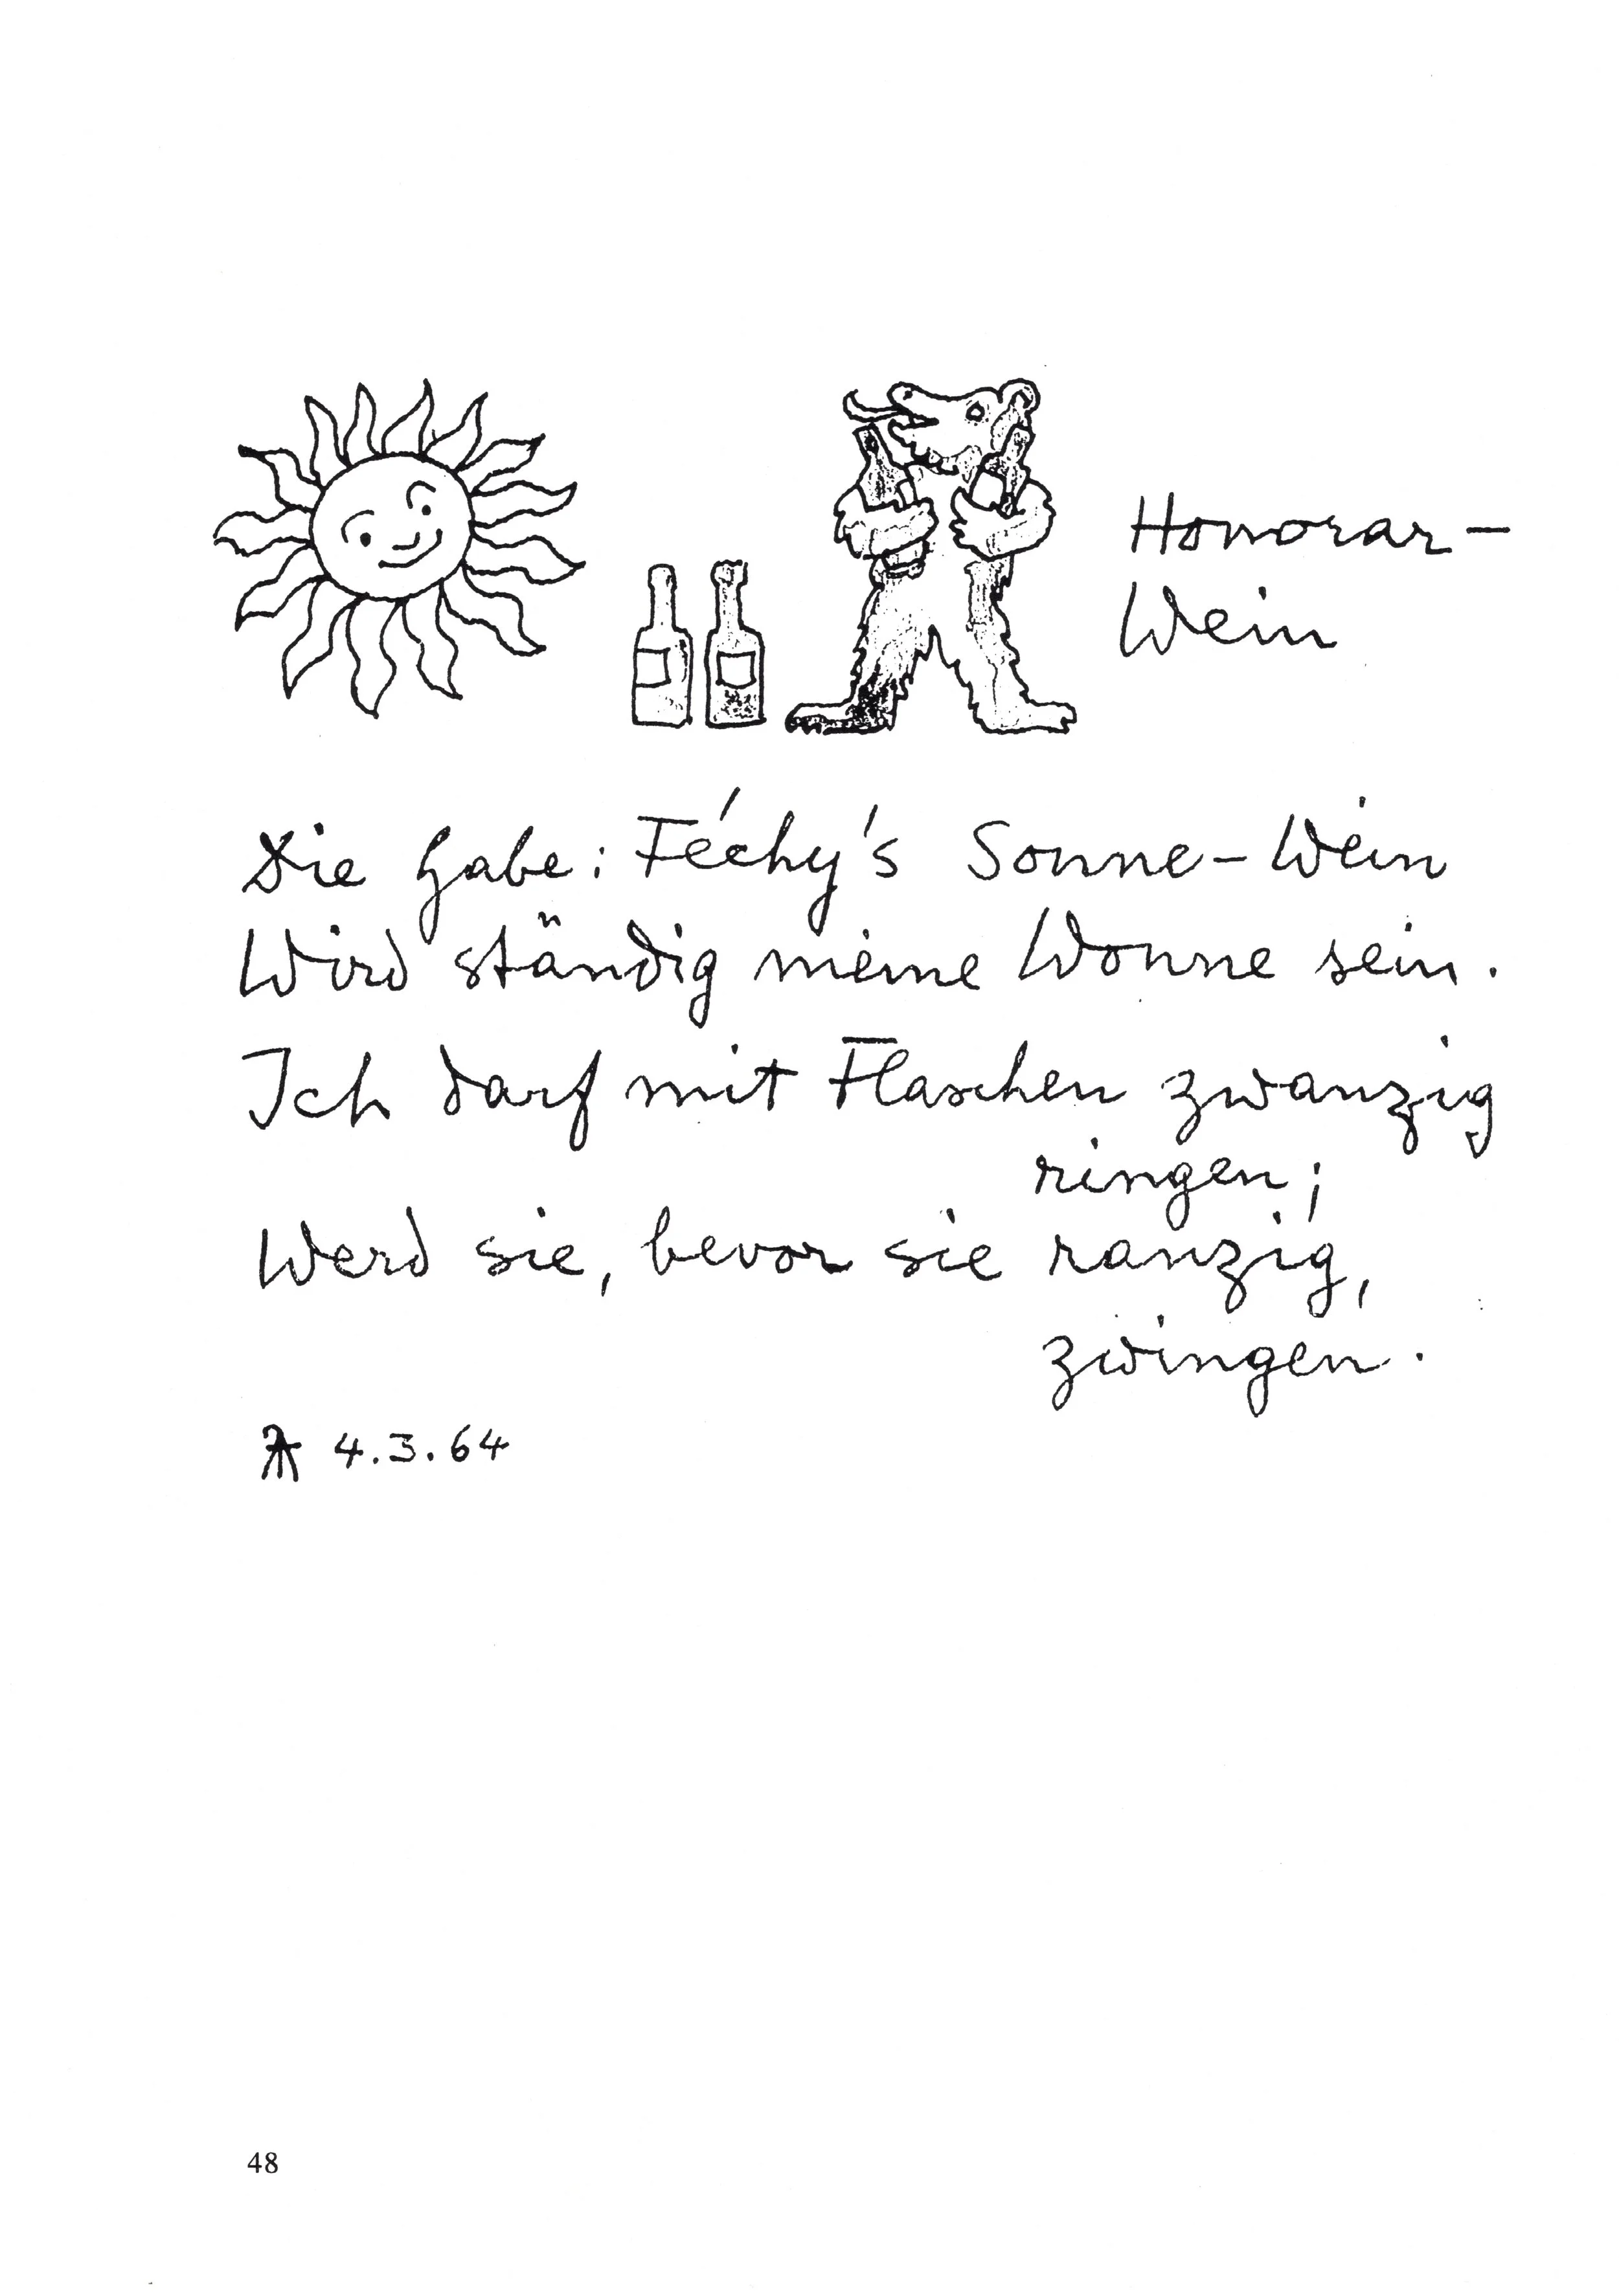 Honorar-
Wein
Die Gabe: Féchy's Sonne-Wein
Wird ständig meine Wonne sein.
Ich darf mit Flaschen zwanzig
ringen;
Werd sie, bevor sie ranzig,
zwingen.
4.3.64
48